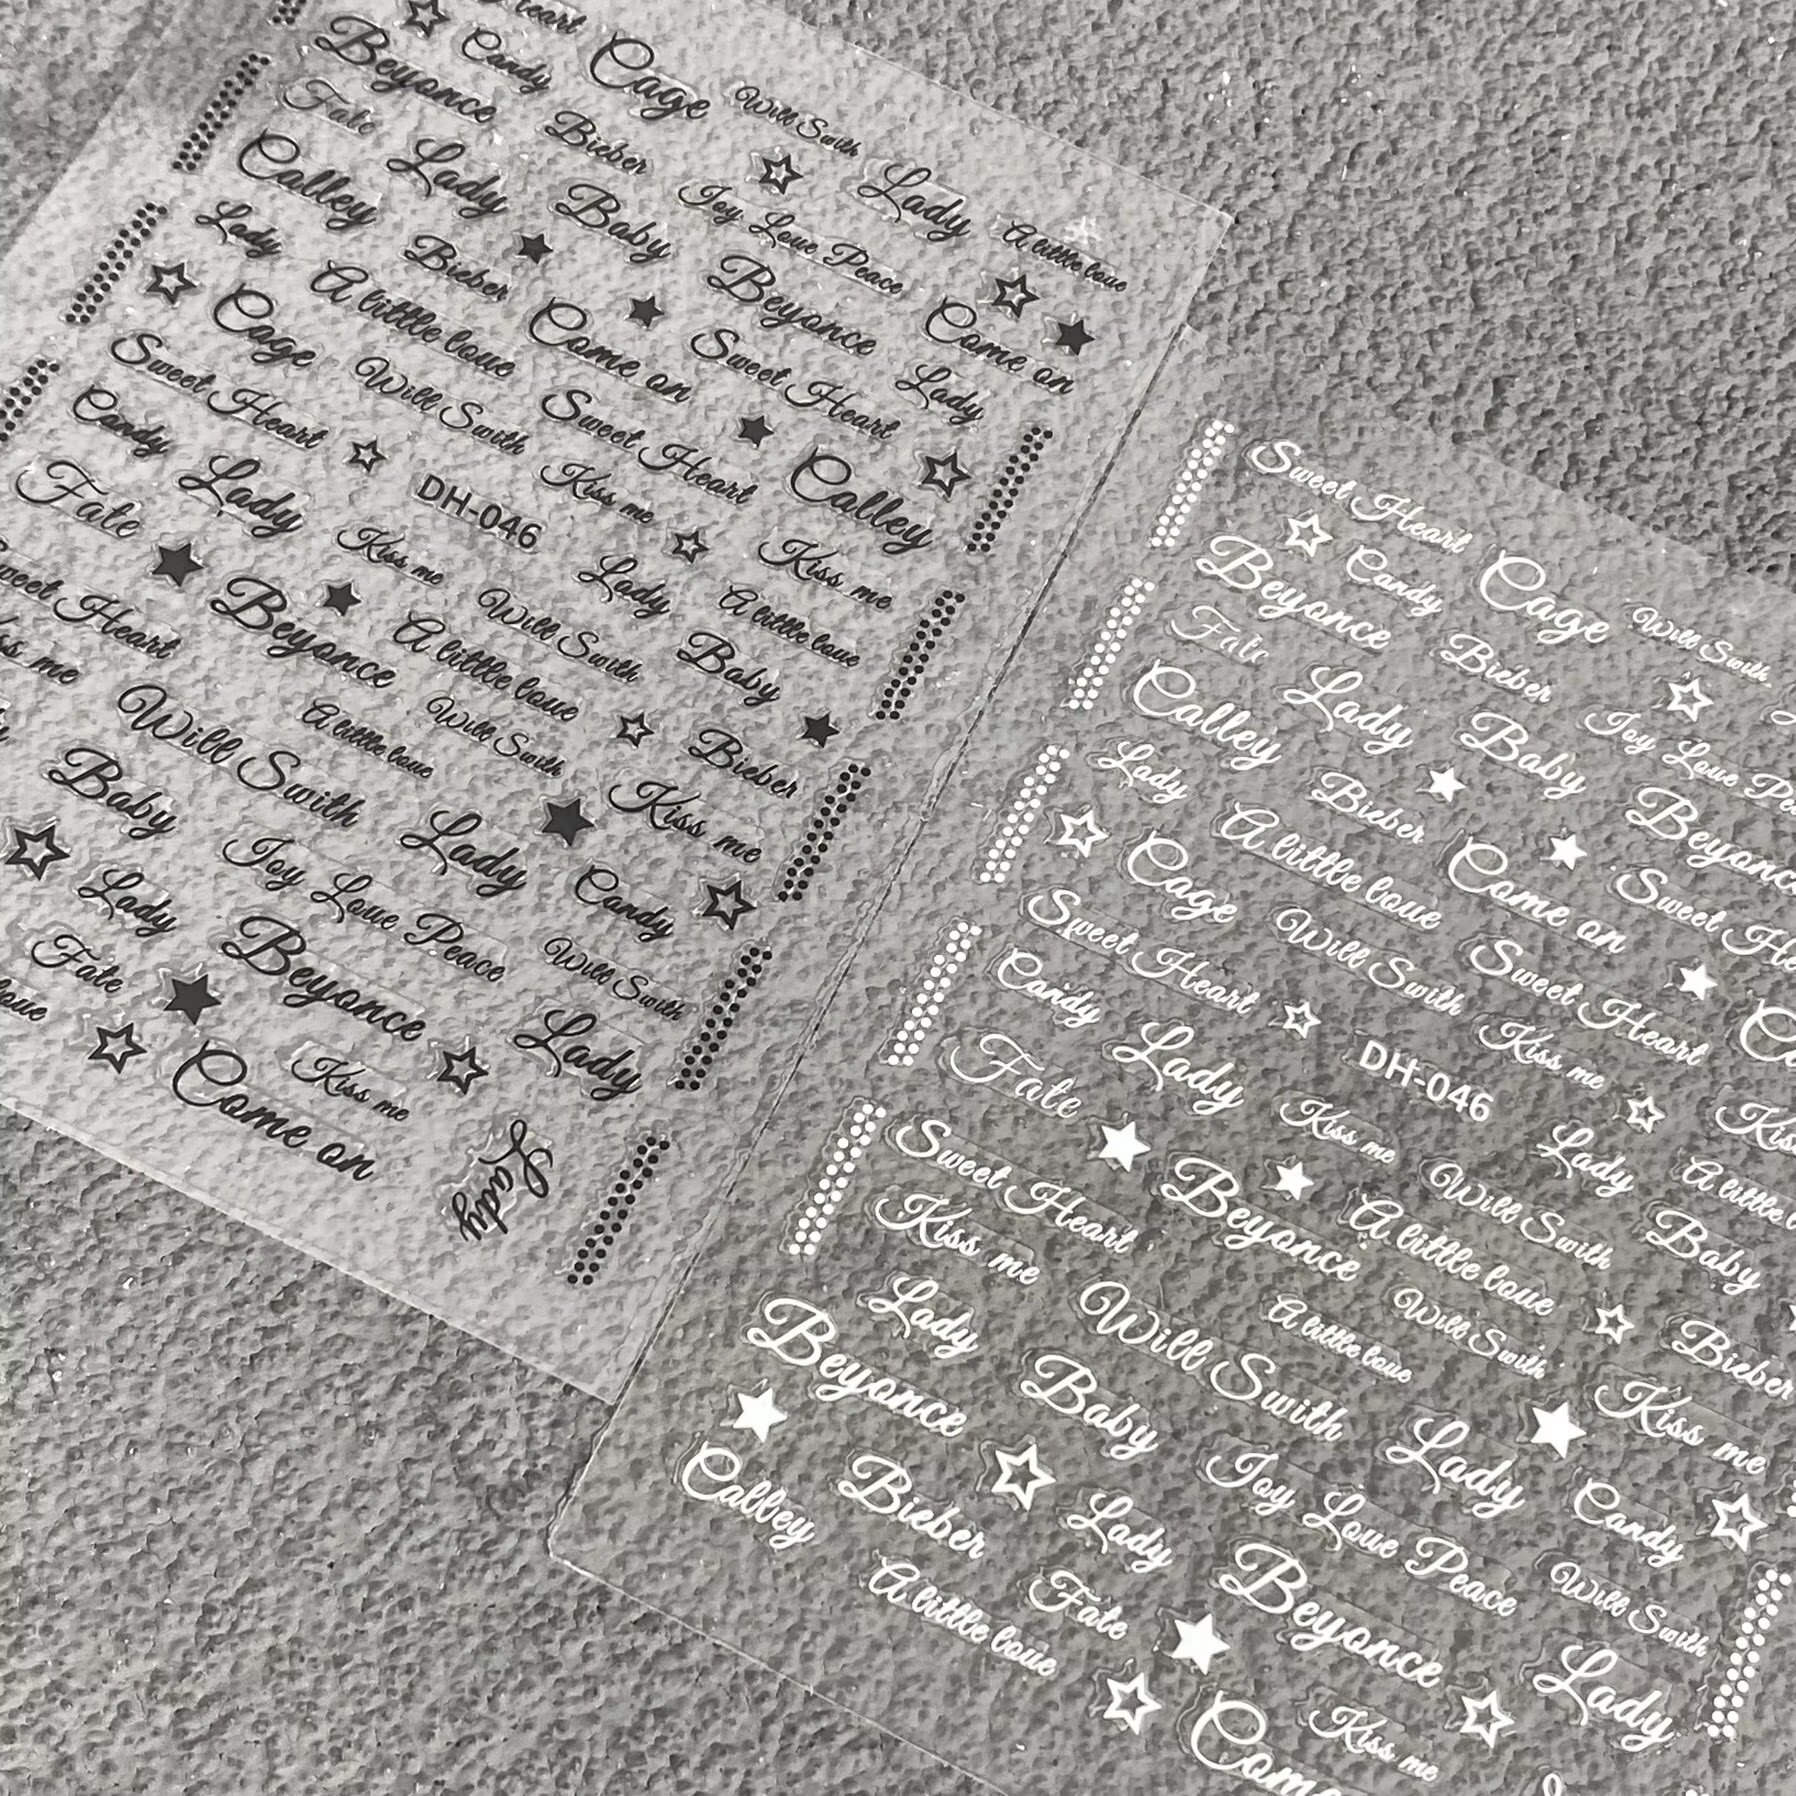 eart
Beyonce
Candy
Cage
Will Swith
Fate
Bieber
Lady
Calley
Lady
Baby
Joy Love Peace
A little love
Lady
Bieber
Beyonce
Come on
Cage
A little love
Come on
Sweet Heart
Lady
Sweet Heart
Will Swith
Sweet Heart
Calley
Candy
Lady
DH-046
Kiss me
Fate
Kiss me
Lady
Kiss me
Sweet Heart
Beyonce
Will Swith
A little love
Kiss me
A little love
Baby
Will Swith
A little love
Will Swith
Bieber
Baby
Lady
Kiss me
Lady
Joy Love Peace
Candy
Fate
Beyonce
Will Swith
love
Come on
Kiss me
Lady
Lady
Sweet Heart
Beyonce
Candy
Cage
Will Swith
Fate
Bieber
Calley
Lady
Baby
Joy Love Pe
Lady
Bieber
Beyonce
Cage
A little love
Come on
Sweet He
Sweet Heart
Will Swith
Sweet Heart
Candy
Lady
DH-046
Kiss me
Fate
Kiss me
Lady
Kiss
Sweet Heart
Beyonce
Will Swith
A little l
Kiss me
A little love
Baby
Lady
Will Swith
A little love
Will Swith
Bieber
Beyonce
Baby
Lady
Kiss me
Calley
Bieber
Lady
Joy Love Peace
Candy
A little love
Fate
Beyonce
Will Swith
Come
Kiss me
Lady